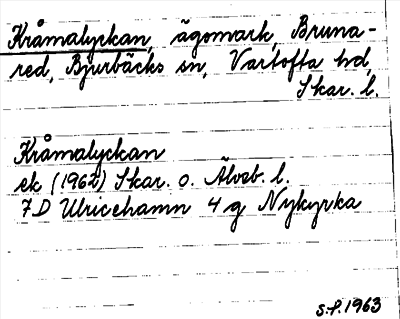 Kråmalyckan, ägomark, Bruna-
red, Bjurbäcks sn, Vartofta hd,
Skar. l.
Kråmalyckan
ek (1962) Skar. o. Älvsb. l.
7D Ulricehamn 4 g Nykyrka
S.P. 1963